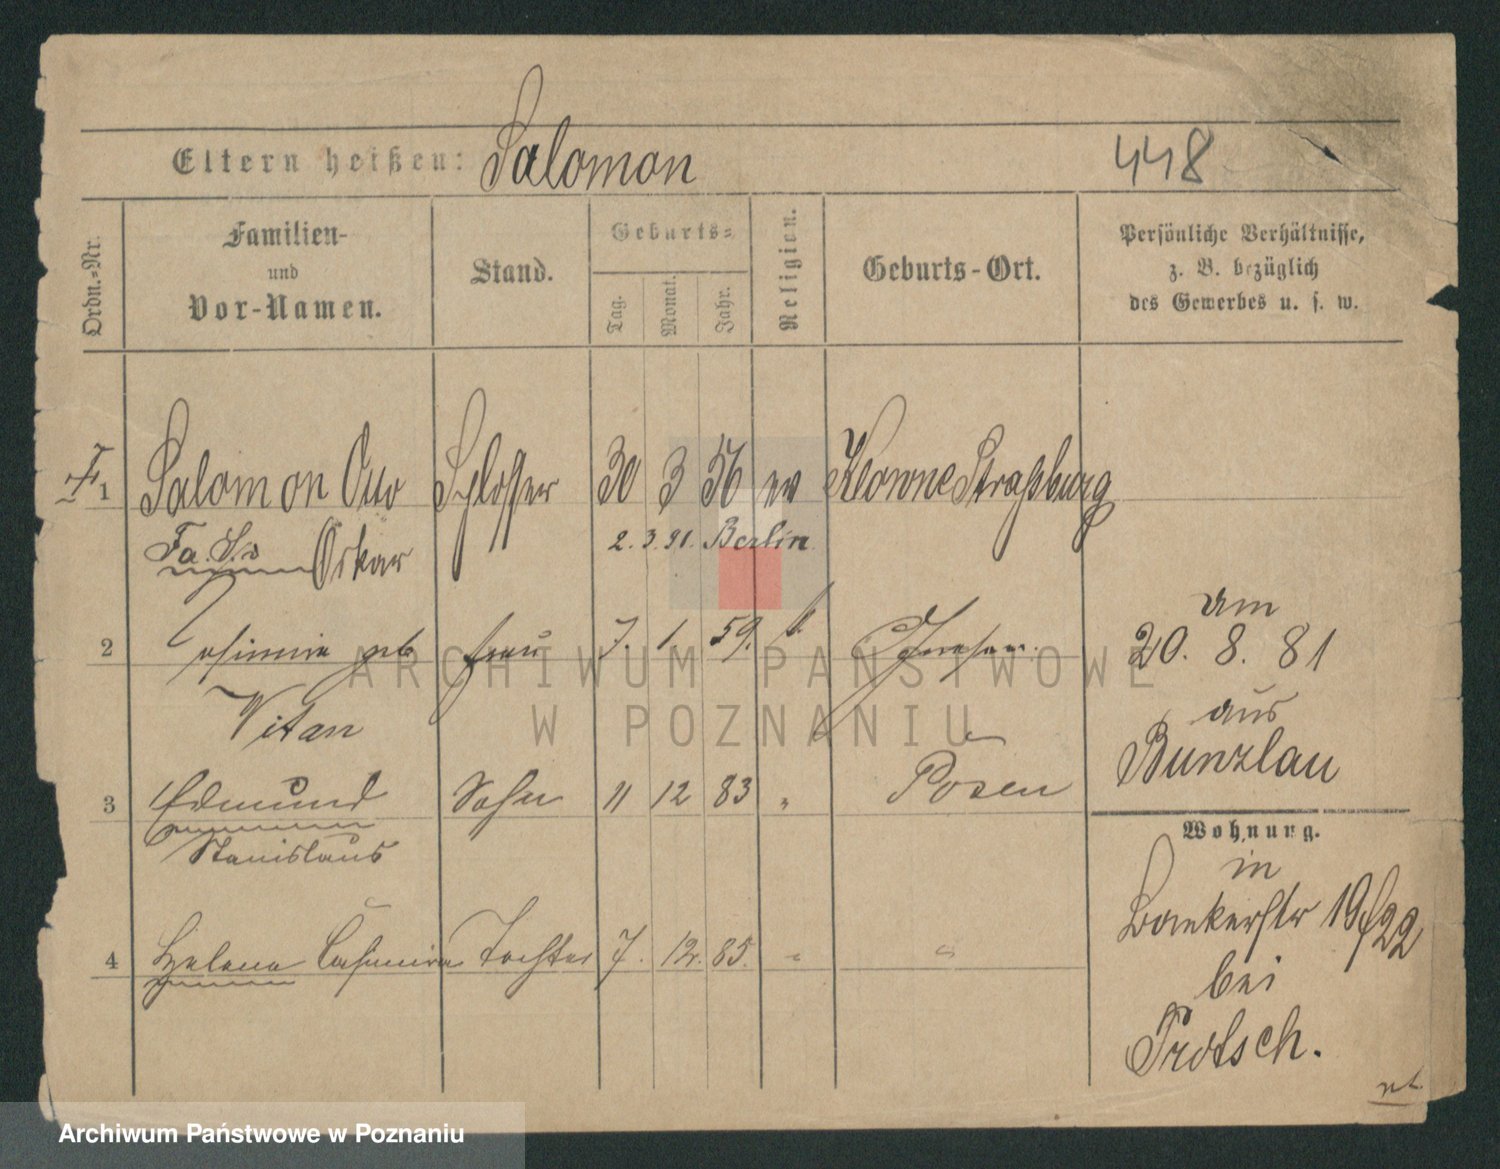 Eltern heißen: Salomon
448
Ordn.-Nr.
Familien-
und
Vor-Namen.
Stand.
Geburts-
Tag.
Monat.
Jahr.
Religion.
Geburts-Ort.
Persönliche Verhältnisse,
z. B. bezüglich
des Gewerbes u. s. w.
1 Salomon Otto Schlosser 30 3 56 ev Straßburg
Oskar 2. 3. 91. Berlin
2 geb Frau 7. 1. 59.
Vitan
am
20. 8. 81
aus
Bunzlau
3 Edmund Sohn 11 12 83 " Posen
Stanislaus
Wohnung.
in
Baekerstr 19/22
bei
Protsch.
4 Helena Casimira Tochter 7. 12. 85. " "
ARCHIWUM PAŃSTWOWE
W POZNANIU
Archiwum Państwowe w Poznaniu